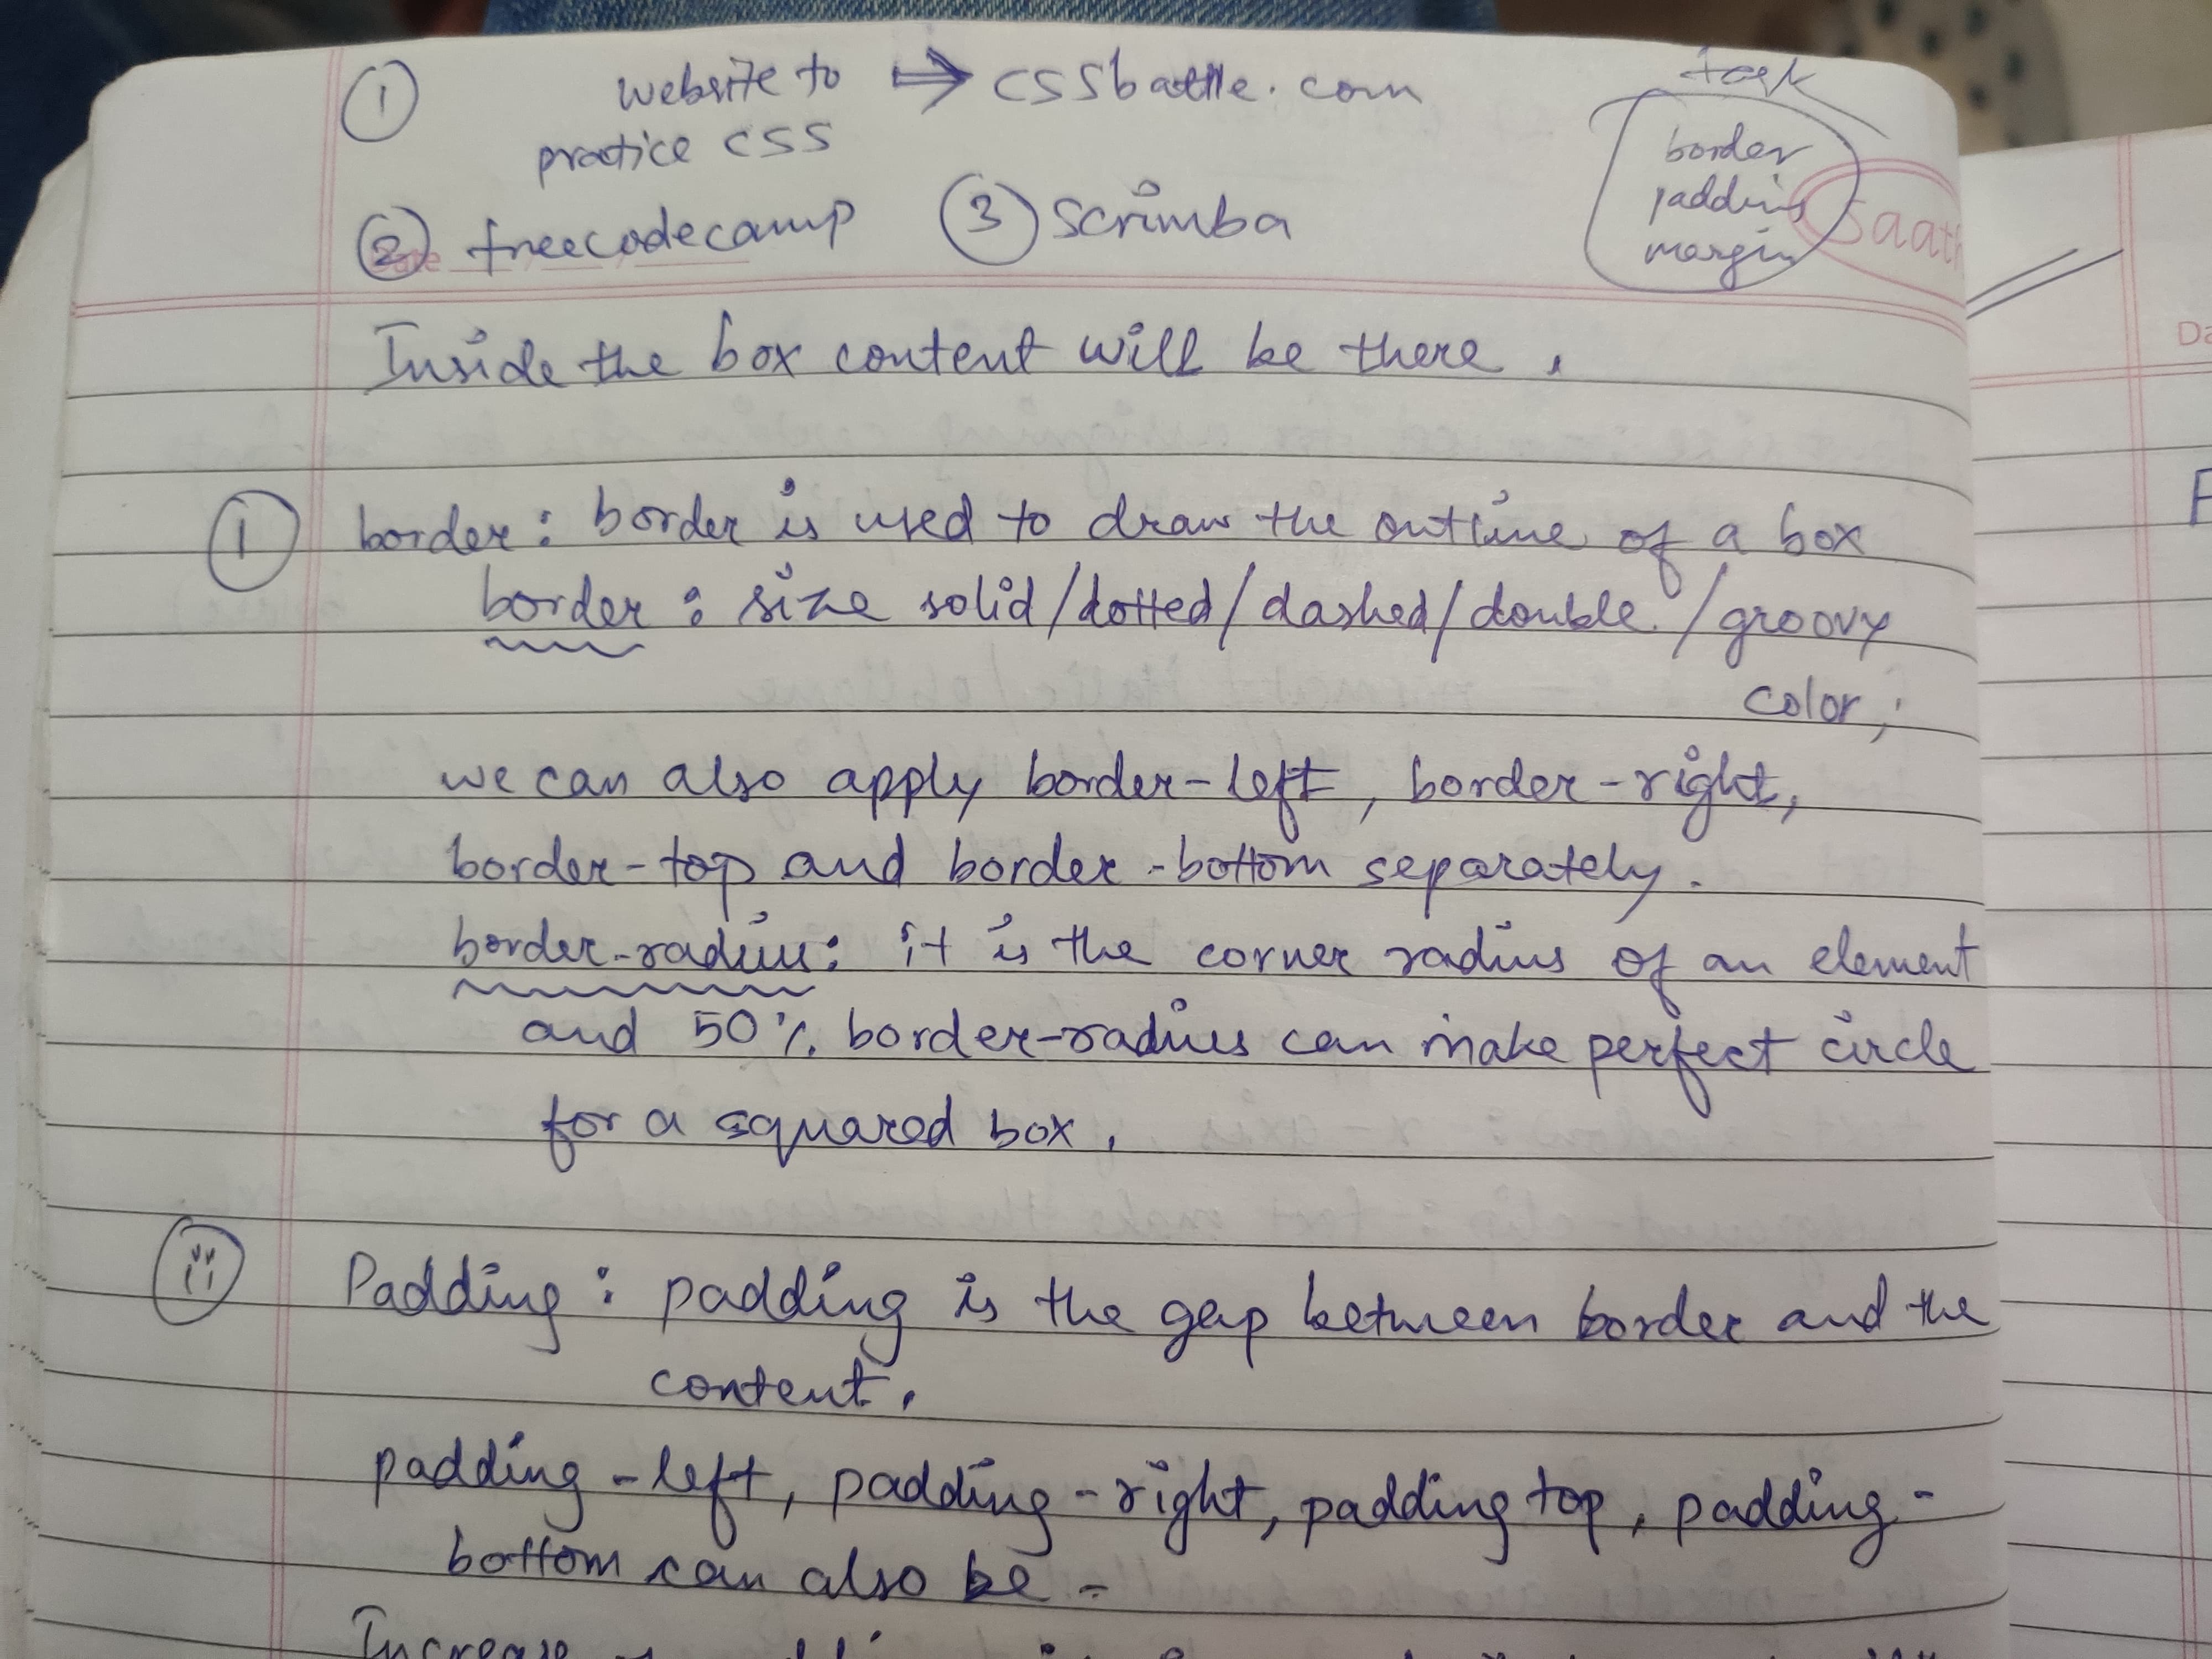 ① website to ⇒ cssbattle.com
practice CSS
② freecodecamp ③ Scrimba
task
border
padding
margin
Saath
Date
Inside the box content will be there.
① border: border is used to draw the outline of a box
border: size solid/dotted/dashed/double/groovy
color;
we can also apply border-left, border-right,
border-top and border-bottom separately.
border-radius: it is the corner radius of an element
and 50% border-radius can make perfect circle
for a squared box.
ii Padding: padding is the gap between border and the
content.
padding-left, padding-right, padding top, padding-
bottom can also be -
Increase
Da